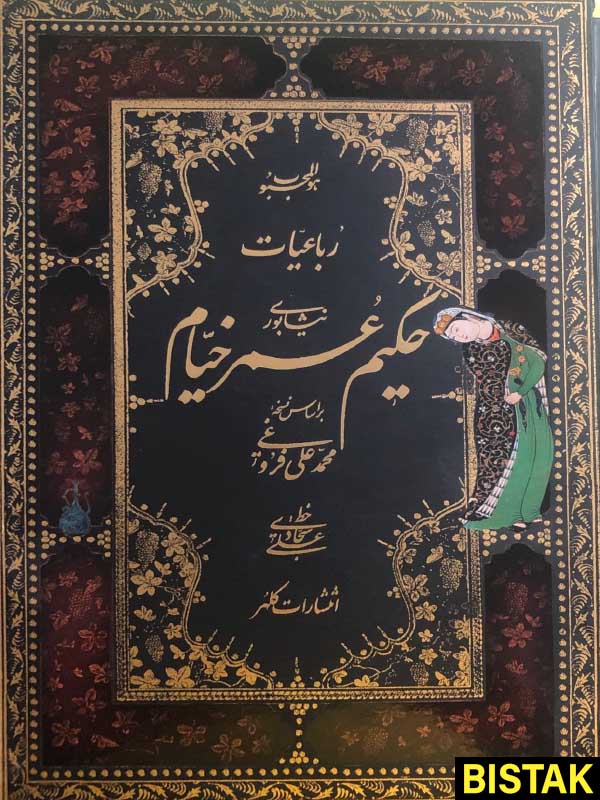 هوالمحبوب
رباعیّات
حکیم عُمر خیّام
نیشابوری
براساس نسخهٔ
محمدعلی فروغی
خط
علی سجادی
انتشارات کلهر
BISTAK